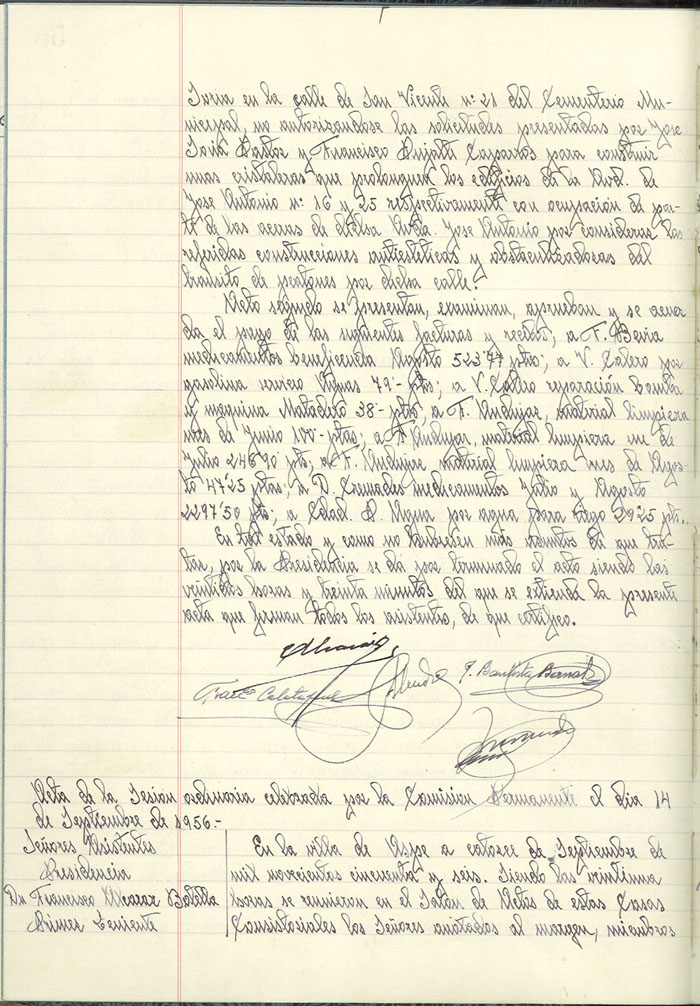 Soria en la calle de San Vicente nº 21 del Cementerio Mu-
nicipal, no autorizandose las solicitudes presentadas por Jose
Soria Pastor y Francisco Pujalte Caparros para construir
unas cristaleras que prolonguen los edificios de la Avd. de
Jose Antonio nº 16 y 25 respectivamente con ocupacion de par-
te de las aceras de dicha Avda. Jose Antonio por considerar las
referidas construcciones antiesteticas y obstaculizadoras del
transito de peatones por dicha calle.
Acto seguido se presentan, examinan, aprueban y se acuer-
da el pago de las siguientes facturas y recibos; a F. Beria
medicamentos beneficencia Agosto 523'77 ptas; a V. Calero por
gasolina servicio Aguas 79'- ptas; a V. Calero reparación bomba
y maquina Matadero 38'- ptas, a F. Andujar, material limpieza
mes de Junio 170'- ptas, a F. Andujar, material limpieza mes de
Julio 246'90 pts; a F. Andujar material limpieza mes de Agos-
to 47'25 ptas; a D. Cremades medicamentos Julio y Agosto
2297'50 pts; a Cdad. P. Agua por agua para riego 29'25 pts.
En tal estado y como no hubiesen más asuntos de que tra-
tar, por la Presidencia se da por terminado el acto siendo las
veintidos horas y treinta minutos del que se extiende la presente
acta que firman todos los asistentes, de que certifico.
J. Bautista Bernabe
Acta de la Sesion ordinaria celebrada por la Comision Permanente el dia 14
de Septiembre de 1956.-
Señores Asistentes
Presidencia
Dn. Francisco Alcaraz Botella
Primer Teniente
En la villa de Aspe a catorce de Septiembre de
mil novecientos cincuenta y seis. Siendo las veintiuna
horas se reunieron en el Salon de Actos de estas Casas
Consistoriales los Señores anotados al margen, miembros